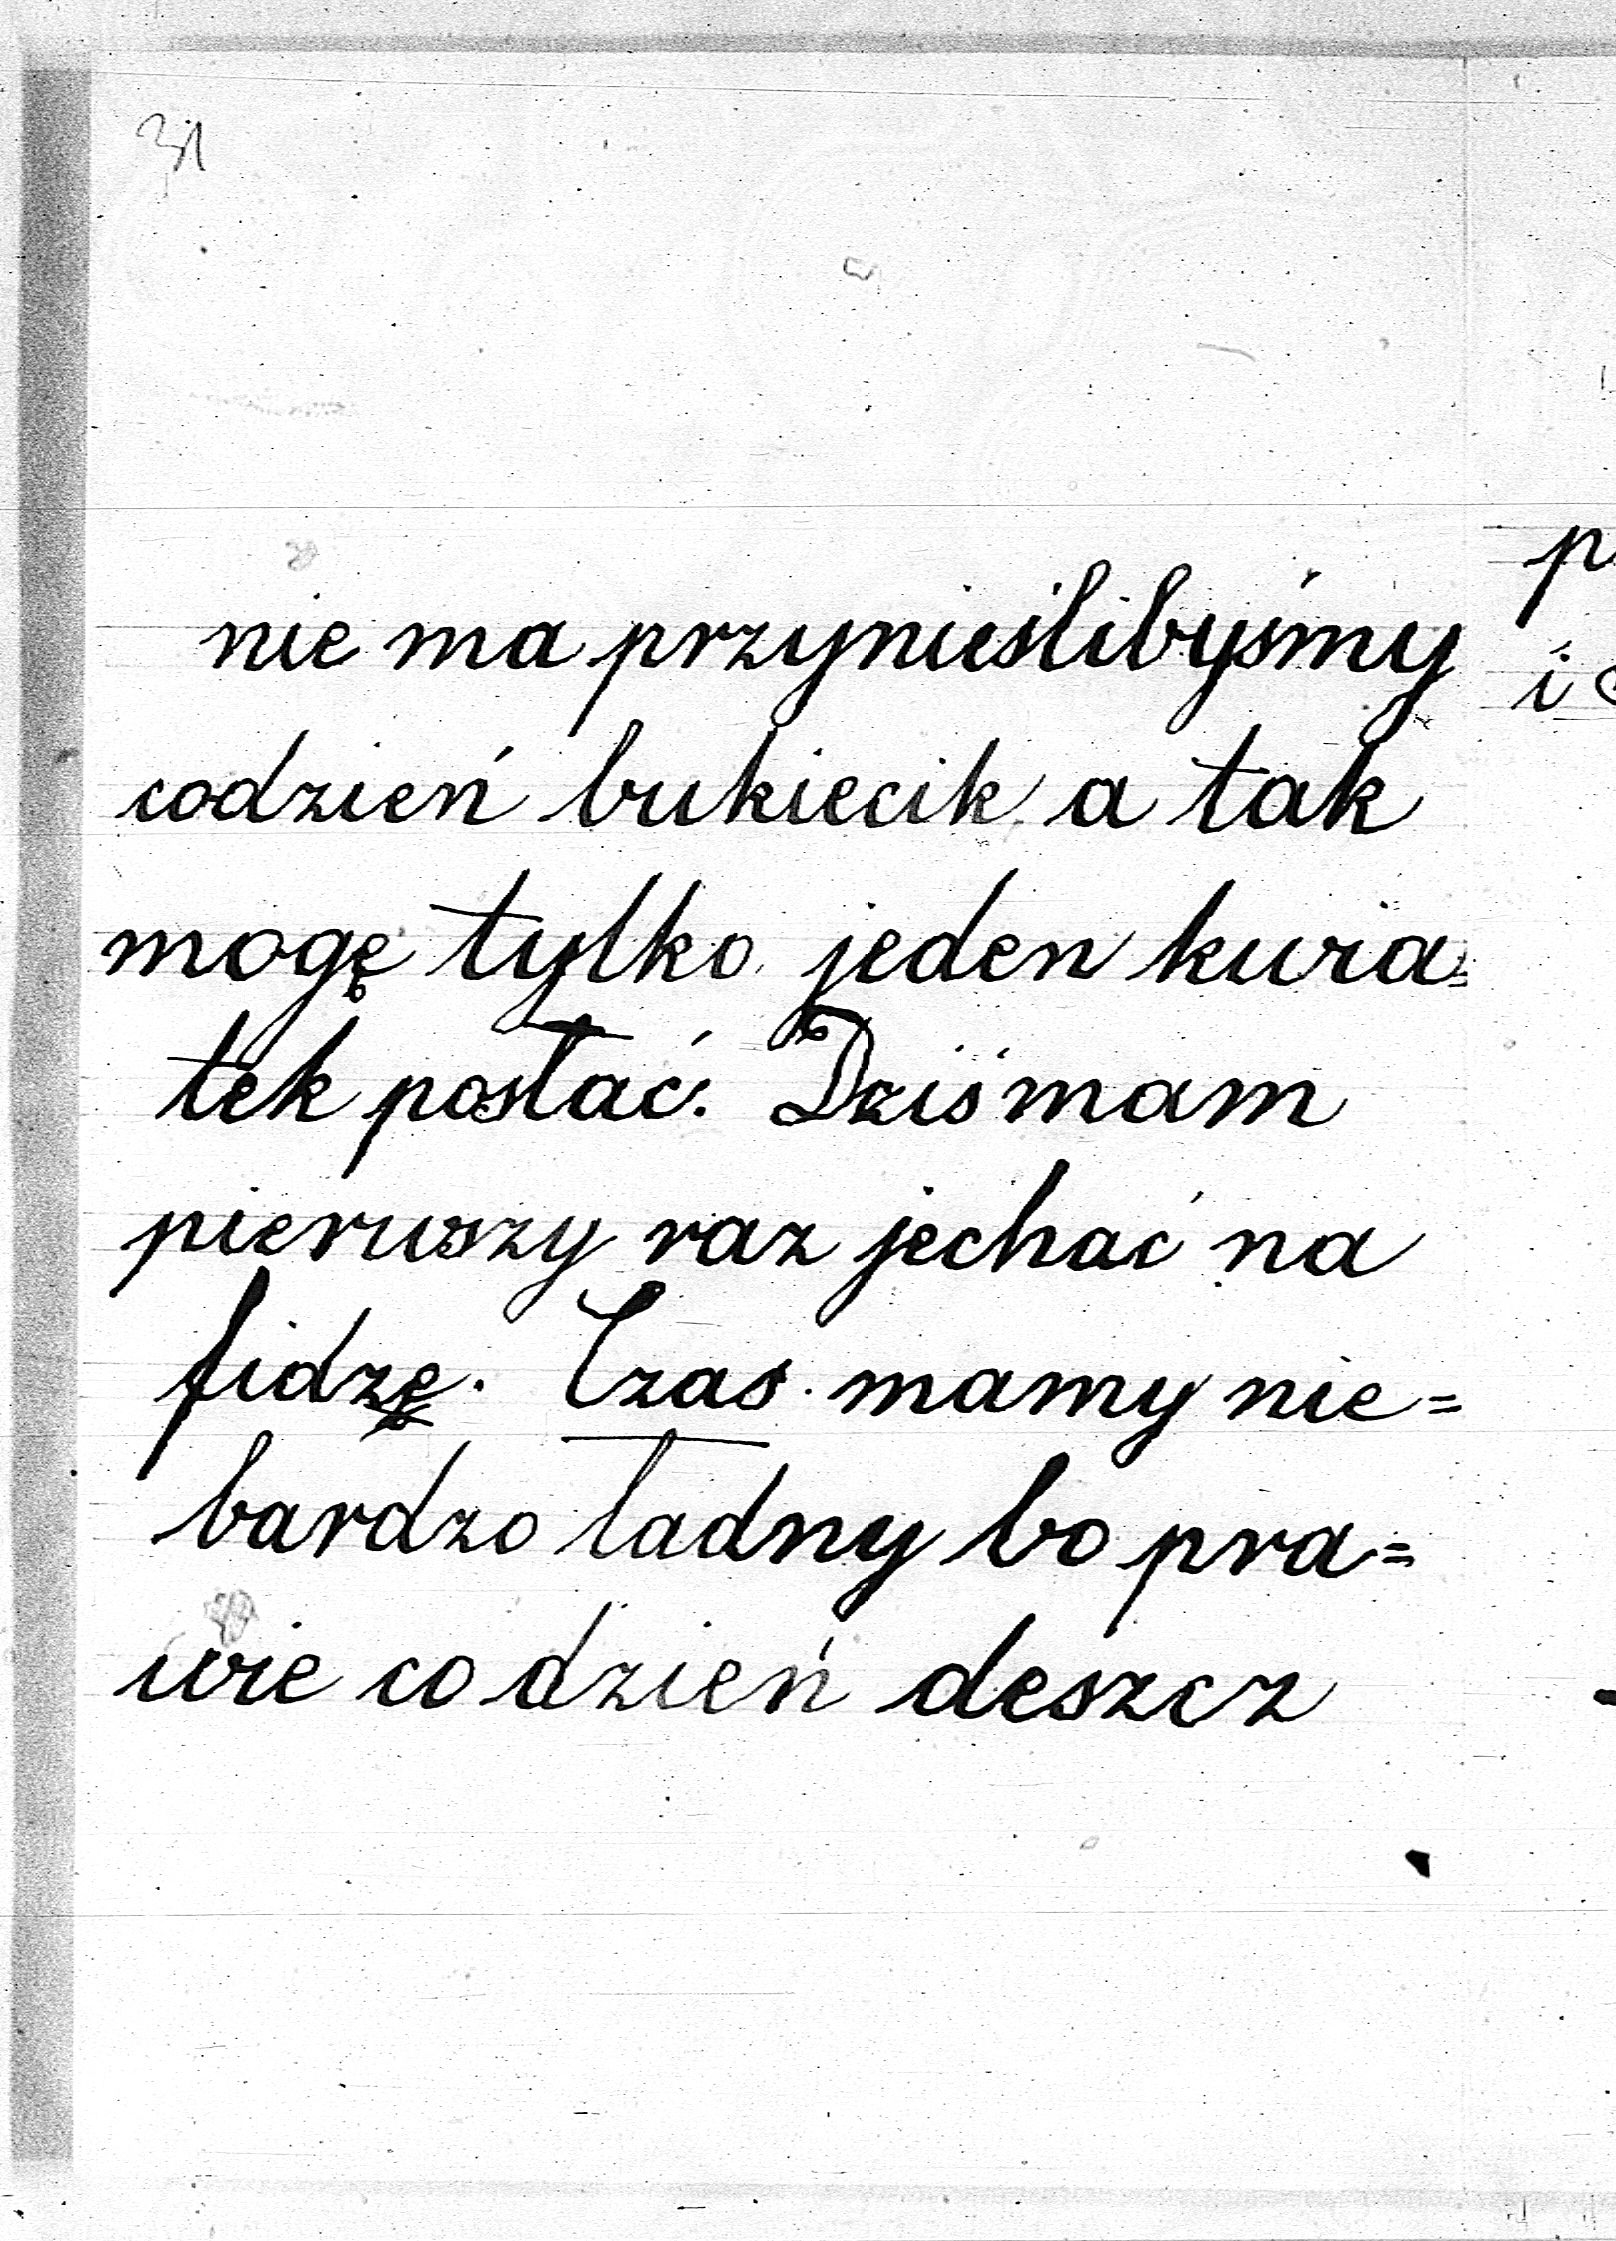 31
nie ma przynieślibyśmy
codzień bukiecik a tak
mogę tylko jeden kwia=
tek posłać. Dziś mam
pierwszy raz jechać na
fidzę. Czas mamy nie=
bardzo ładny bo pra=
wie codzień deszcz